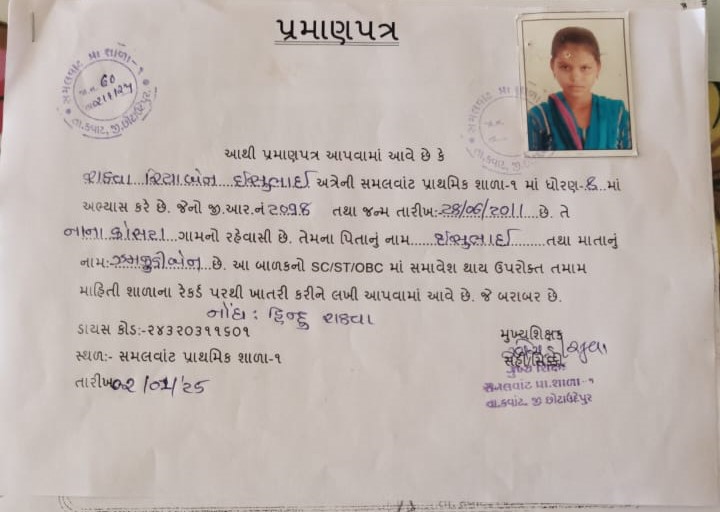 પ્રમાણપત્ર
સમલવાંટ પ્રા શાળા-૧
જા.નં. 60
તા.કવાંટ, જી.છોટાઉદેપુર
આથી પ્રમાણપત્ર આપવામાં આવે છે કે
રાઠવા રિયાબેન ઈસુભાઈ અત્રેની સમલવાંટ પ્રાથમિક શાળા-૧ માં ધોરણ-8 માં
અભ્યાસ કરે છે. જેનો જી.આર.નં ૨૦૧૪ તથા જન્મ તારીખ:-28/06/2011 છે. તે
નાના કોસરા ગામનો રહેવાસી છે. તેમના પિતાનું નામ ઈસુભાઈ તથા માતાનું
નામ: છે. આ બાળકનો SC/ST/OBC માં સમાવેશ થાય ઉપરોક્ત તમામ
માહિતી શાળાના રેકર્ડ પરથી ખાતરી કરીને લખી આપવામાં આવે છે. જે બરાબર છે.
નોંધ : હિન્દુ રાઠવા
ડાયસ કોડ:-૨૪૩૨૦૩૧૧૬૦૧
સ્થળ:- સમલવાંટ પ્રાથમિક શાળા-૧
તારીખ ૦૨/૦૧/૨૫
મુખ્યશિક્ષક
મુખ્ય શિક્ષક
સમલવાંટ પ્રા.શાળા-૧
તા.કવાંટ, જી છોટાઉદેપુર